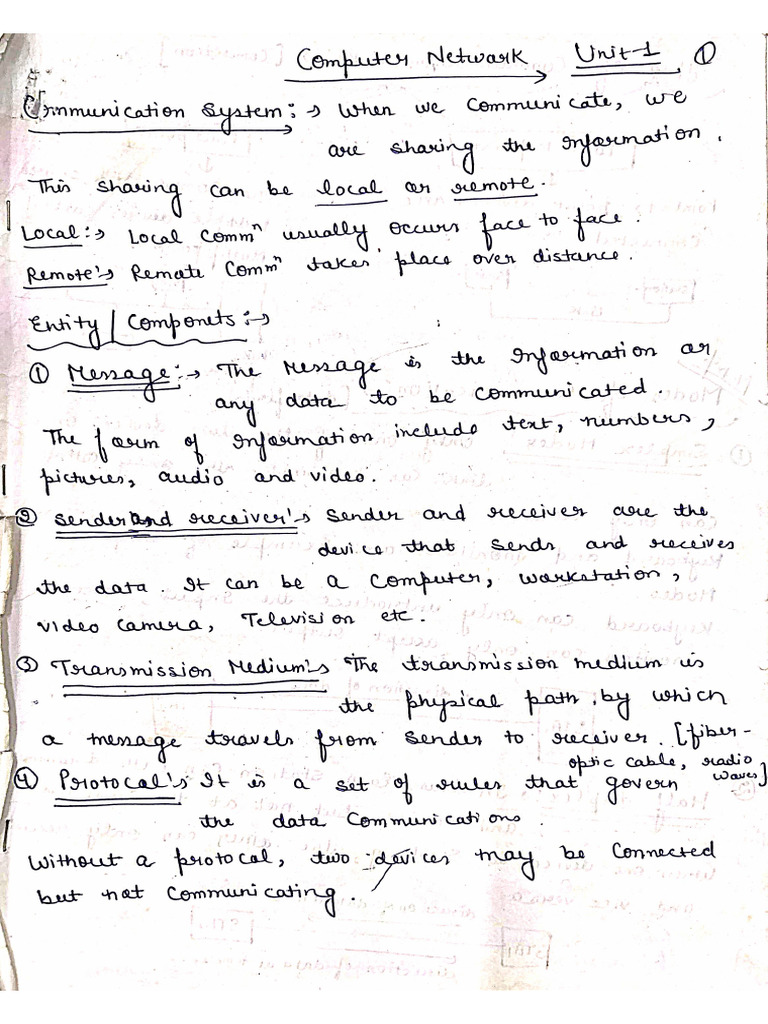 Computer Network Unit-1 ①
Communication System:→ When we communicate, we
are sharing the information.
This sharing can be local or remote.
Local:→ Local Commⁿ usually occurs face to face.
Remote:→ Remote Commⁿ takes place over distance.
Entity/Componets:→
① Message:→ The Message is the information or
any data to be communicated.
The form of information include text, numbers,
pictures, audio and video.
② Sender and receiver:→ Sender and receiver are the
device that sends and receives
the data. It can be a Computer, workstation,
video camera, Television etc.
③ Transmission Medium:→ The transmission medium is
the physical path, by which
a message travels from sender to receiver. [fiber-
optic cable, radio
waves]
④ Protocal:→ It is a set of rules that govern
the data Communications.
Without a protocal, two devices may be connected
but not communicating.